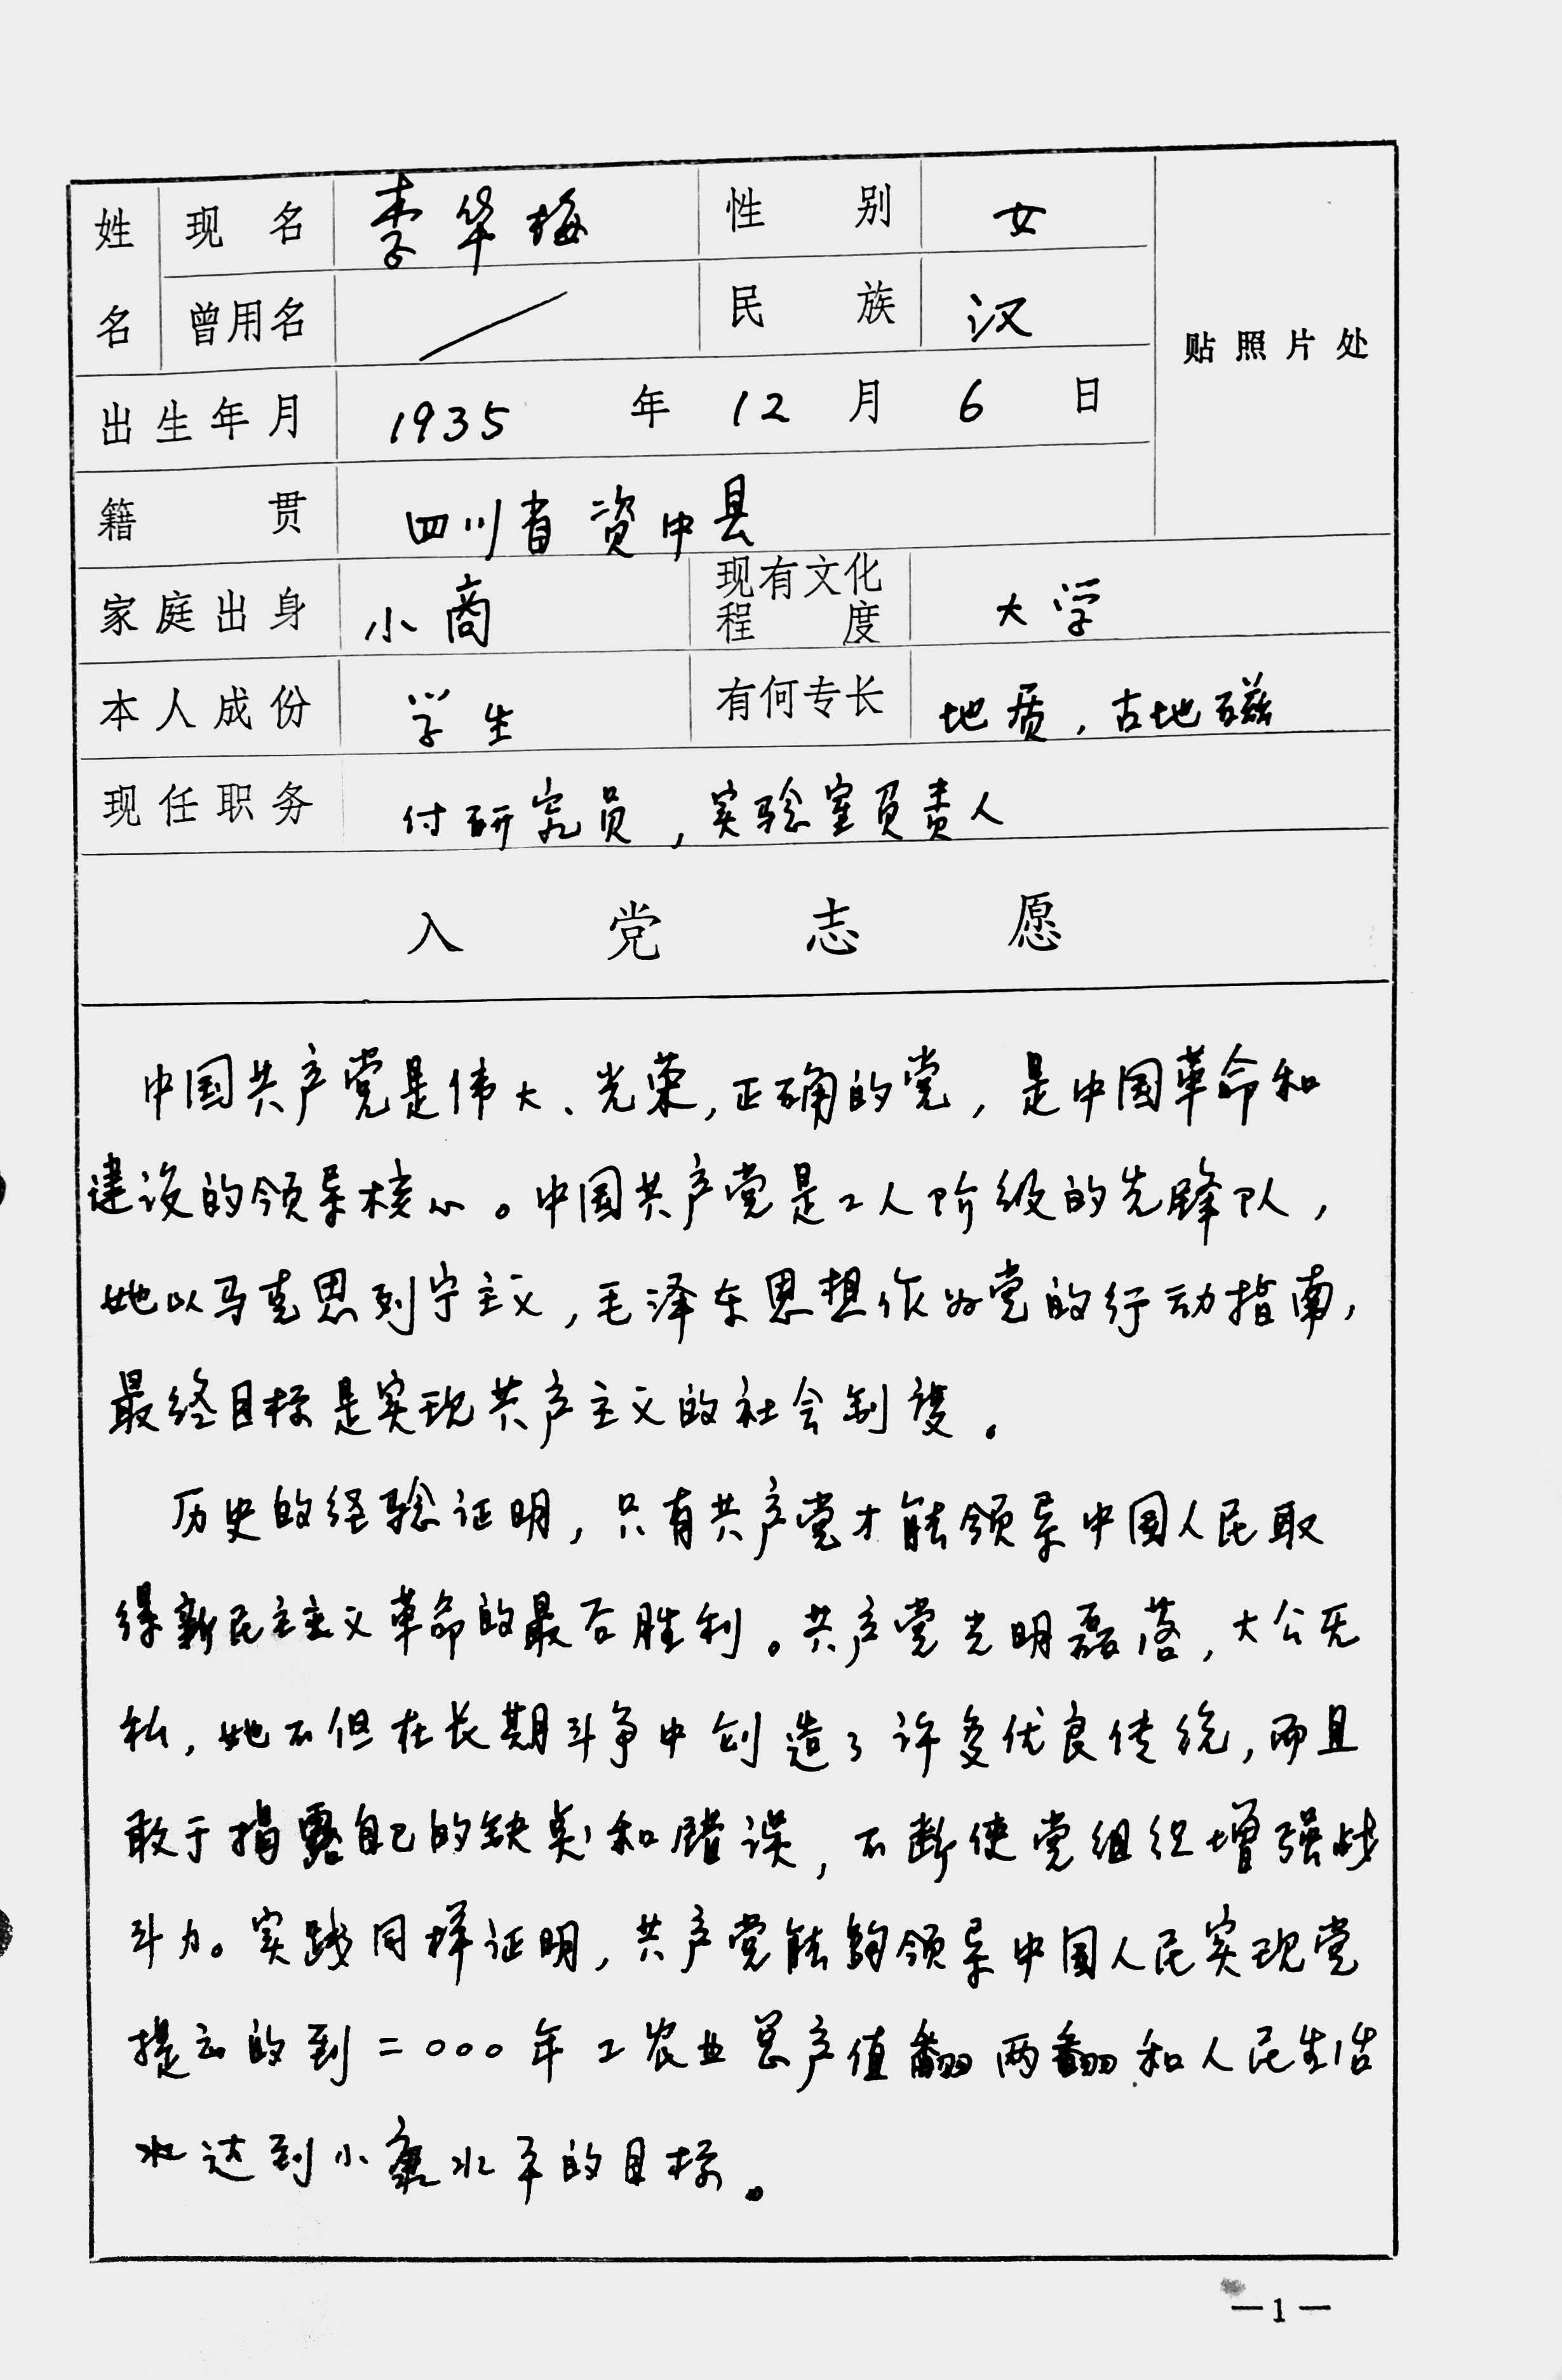 姓名 现名 李华梅 性别 女
曾用名 民族 汉
贴照片处
出生年月 1935年12月6日
籍贯 四川省资中县
家庭出身 小商 现有文化程度 大学
本人成份 学生 有何专长 地质，古地磁
现任职务 付研究员，实验室负责人
入党志愿
中国共产党是伟大、光荣，正确的党，是中国革命和
建设的领导核心。中国共产党是工人阶级的先锋队，
她以马克思列宁主义，毛泽东思想作为党的行动指南，
最终目标是实现共产主义的社会制度。
历史的经验证明，只有共产党才能领导中国人民取
得新民主主义革命的最后胜利。共产党光明磊落，大公无
私，她不但在长期斗争中创造了许多优良传统，而且
敢于揭露自己的缺点和错误，不断使党组织增强战
斗力。实践同样证明，共产党能够领导中国人民实现党
提出的到二〇〇〇年工农业总产值翻两翻和人民生活
水达到小康水平的目标。
—1—